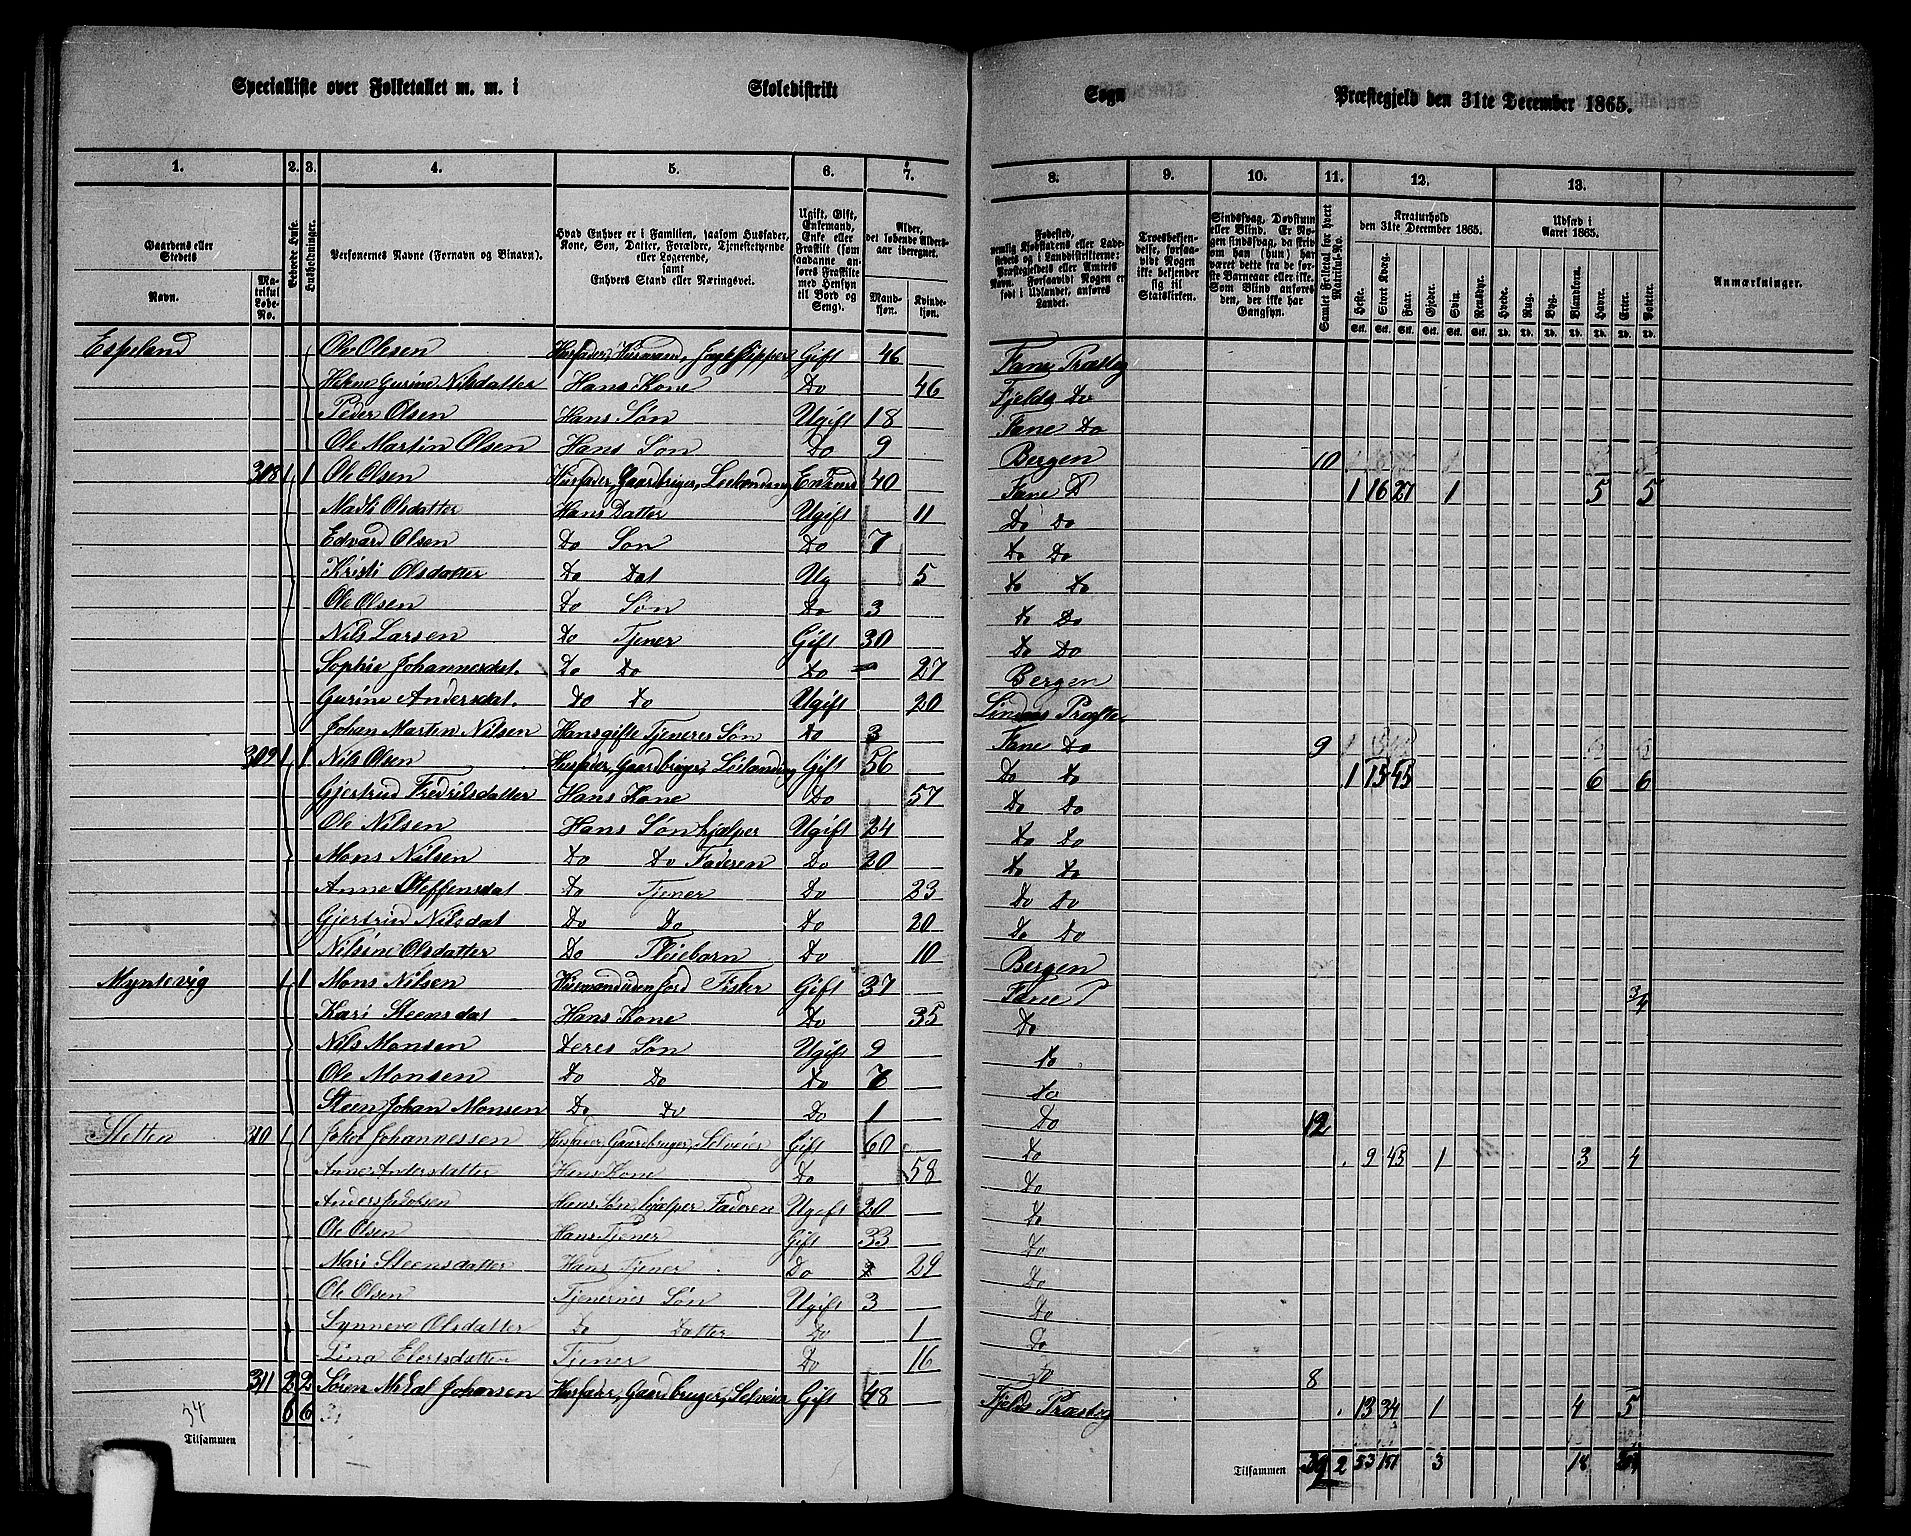 Specialliste over Folketallet m. m. i Skoledistrikt Sogn Præstegjeld den 31te December 1865.
1. 2. 3. 4. 5. 6. 7. 8. 9. 10. 11. 12. 13.
Gaardens eller Stedets
Navn.
Matrikul Løbe-No.
Beboede Huse.
Husholdninger.
Personernes Navne (Fornavn og Binavn).
Hvad Enhver er i Familien, saasom Husfader, Kone, Søn, Datter, Forældre, Tjenestetyende eller Logerende, samt Enhvers Stand eller Næringsvei.
Ugift, Gift, Enkemand, Enke eller Fraskilt (som saadanne anføres Fraskilte med Hensyn til Bord og Seng).
Alder, det løbende Aldersaar iberegnet.
Mandkjøn.
Kvindekjøn.
Fødested, nemlig Kjøbstadens eller Ladestedets og i Landdistrikterne: Præstegjeldets eller Amtets Navn. Forsaavidt Nogen er født i Udlandet, anføres Landet.
Troesbekjendelse, forsaavidt Nogen ikke bekjender sig til Statskirken.
Sindssvag, Døvstum eller Blind. Er Nogen sindssvag, da skrives om han (hun) har været dette fra de første Barneaar eller ikke. Som Blind anføres den, der ikke har Gangsyn.
Samlet Folketal for hvert Matrikul-No.
Kreaturhold den 31te December 1865.
Heste. Stort Kvæg. Faar. Gjeder. Svin. Rensdyr.
Udsæd i Aaret 1865.
Hvede. Rug. Byg. Blandkorn. Havre. Erter. Poteter.
Anmærkninger.
Espeland Ole Olesen Husfader, Husmand, Jagtskipper Gift 46 Fane Præsteg
Helene Gurine Nilsdatter Hans Kone Do 46 Fjelds Do
Peder Olsen Hans Søn Ugift 18 Fane Do
Ole Martin Olsen Hans Søn Do 9 Bergen 10
308 1 1 Ole Olsen Husfader, Gaardbruger, Leilænding 40 Fane P 1 16 27 1 5 5
Olsdatter Hans Datter Ugift 11 Do Do
Edvard Olsen Do Søn Do 7 Do Do
Kristi Olsdatter Do Dat Ug 5 Do Do
Ole Olsen Do Søn Do 3 Do Do
Nils Larsen Do Tjener Gift 30 Do Do
Sophie Johannesdat. Do Do Do 27 Bergen
Gurine Andersdat. Do Do Ugift 20 Lindaas Præste
Johan Marten Nilsen Hans gifte Tjeneres Søn Do 3 Fane Do 9
309 1 1 Nils Olsen Husfader, Gaardbruger, Leilænding Gift 56 Do Do 1 15 45 6 6
Gjertrud Fredriksdatter Hans Kone Do 57 Do Do
Ole Nilsen Hans Søn hjælper Ugift 24 Do Do
Mons Nilsen Do Do Faderen Do 20 Do Do
Anne Steffensdat Do Tjener Do 23 Do Do
Gjertrud Nilsdat Do Do Do 20 Do Do
Nilsine Olsdatter Do Pleiebarn Do 10 Bergen
Myntevig 1 1 Mons Nilsen Husmand uden Jord Fisker Gift 37 Fane P 3/4
Kari Steensdat Hans Kone Do 35 Do
Nils Monsen Deres Søn Ugift 9 Do
Ole Monsen Do Do Do 7 Do
Steen Johan Monsen Do Do Do 1 Do 12
Sletten 310 1 1 Johannessen Husfader, Gaardbruger, Selveier Gift 60 Do 9 45 1 3 4
Anne Andersdatter Hans Kone Do 58 Do
Anders Hans Søn, hjælper Faderen Ugift 20 Do
Ole Olsen Hans Tjener Gift 33 Do
Mari Steensdatter Hans Tjener Do 29 Do
Ole Olsen Tjenernes Søn Ugift 3 Do
Synneve Olsdatter Do Datter Do 1 Do
Lina Elertsdatter Tjener Do 16 Do 8
311 2 2 Søren Mikal Johansen Husfader, Gaardbruger, Selveier Gift 48 Fjelds Præsteg 13 34 1 4 5
34 6 6
Tilsammen Tilsammen 39 2 53 151 3 18